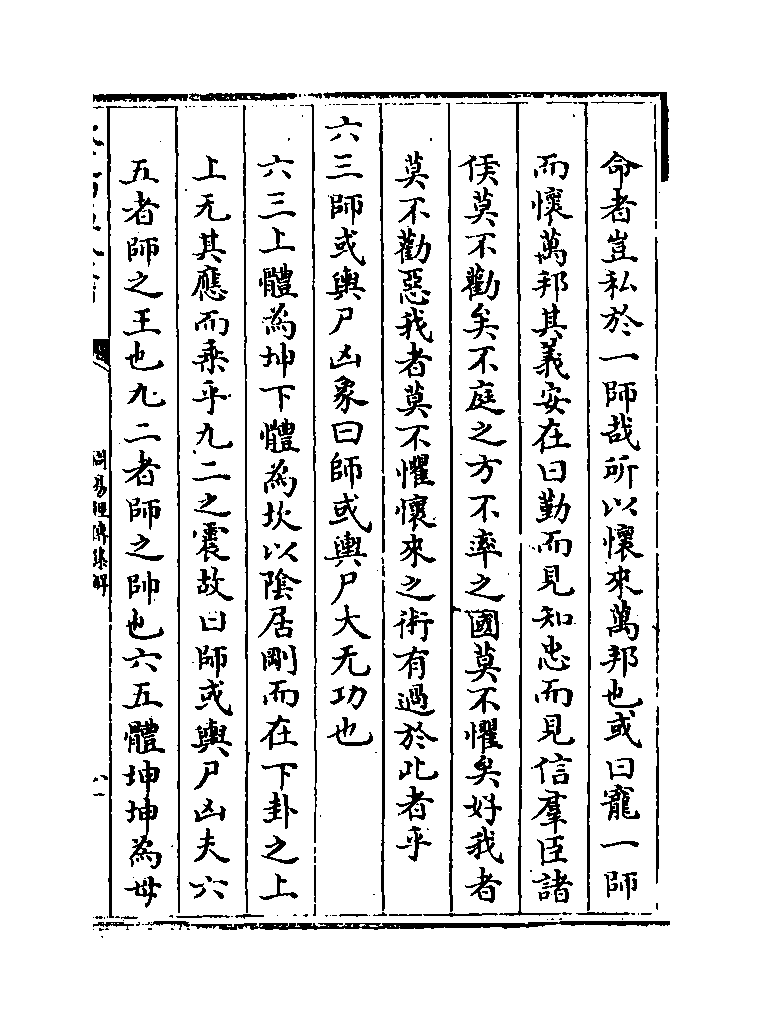 命者豈私於一師哉所以懷來萬邦也或曰寵一師
而懷萬邦其義安在曰勤而見知忠而見信羣臣諸
侯莫不勸矣不庭之方不率之國莫不懼矣好我者
莫不勸惡我者莫不懼懷來之術有過於此者乎
六三師或輿尸凶象曰師或輿尸大无功也
六三上體為坤下體為坎以陰居剛而在下卦之上
上无其應而乘乎九二之震故曰師或輿尸凶夫六
五者師之王也九二者師之帥也六五體坤坤為毋
周易經傳集解